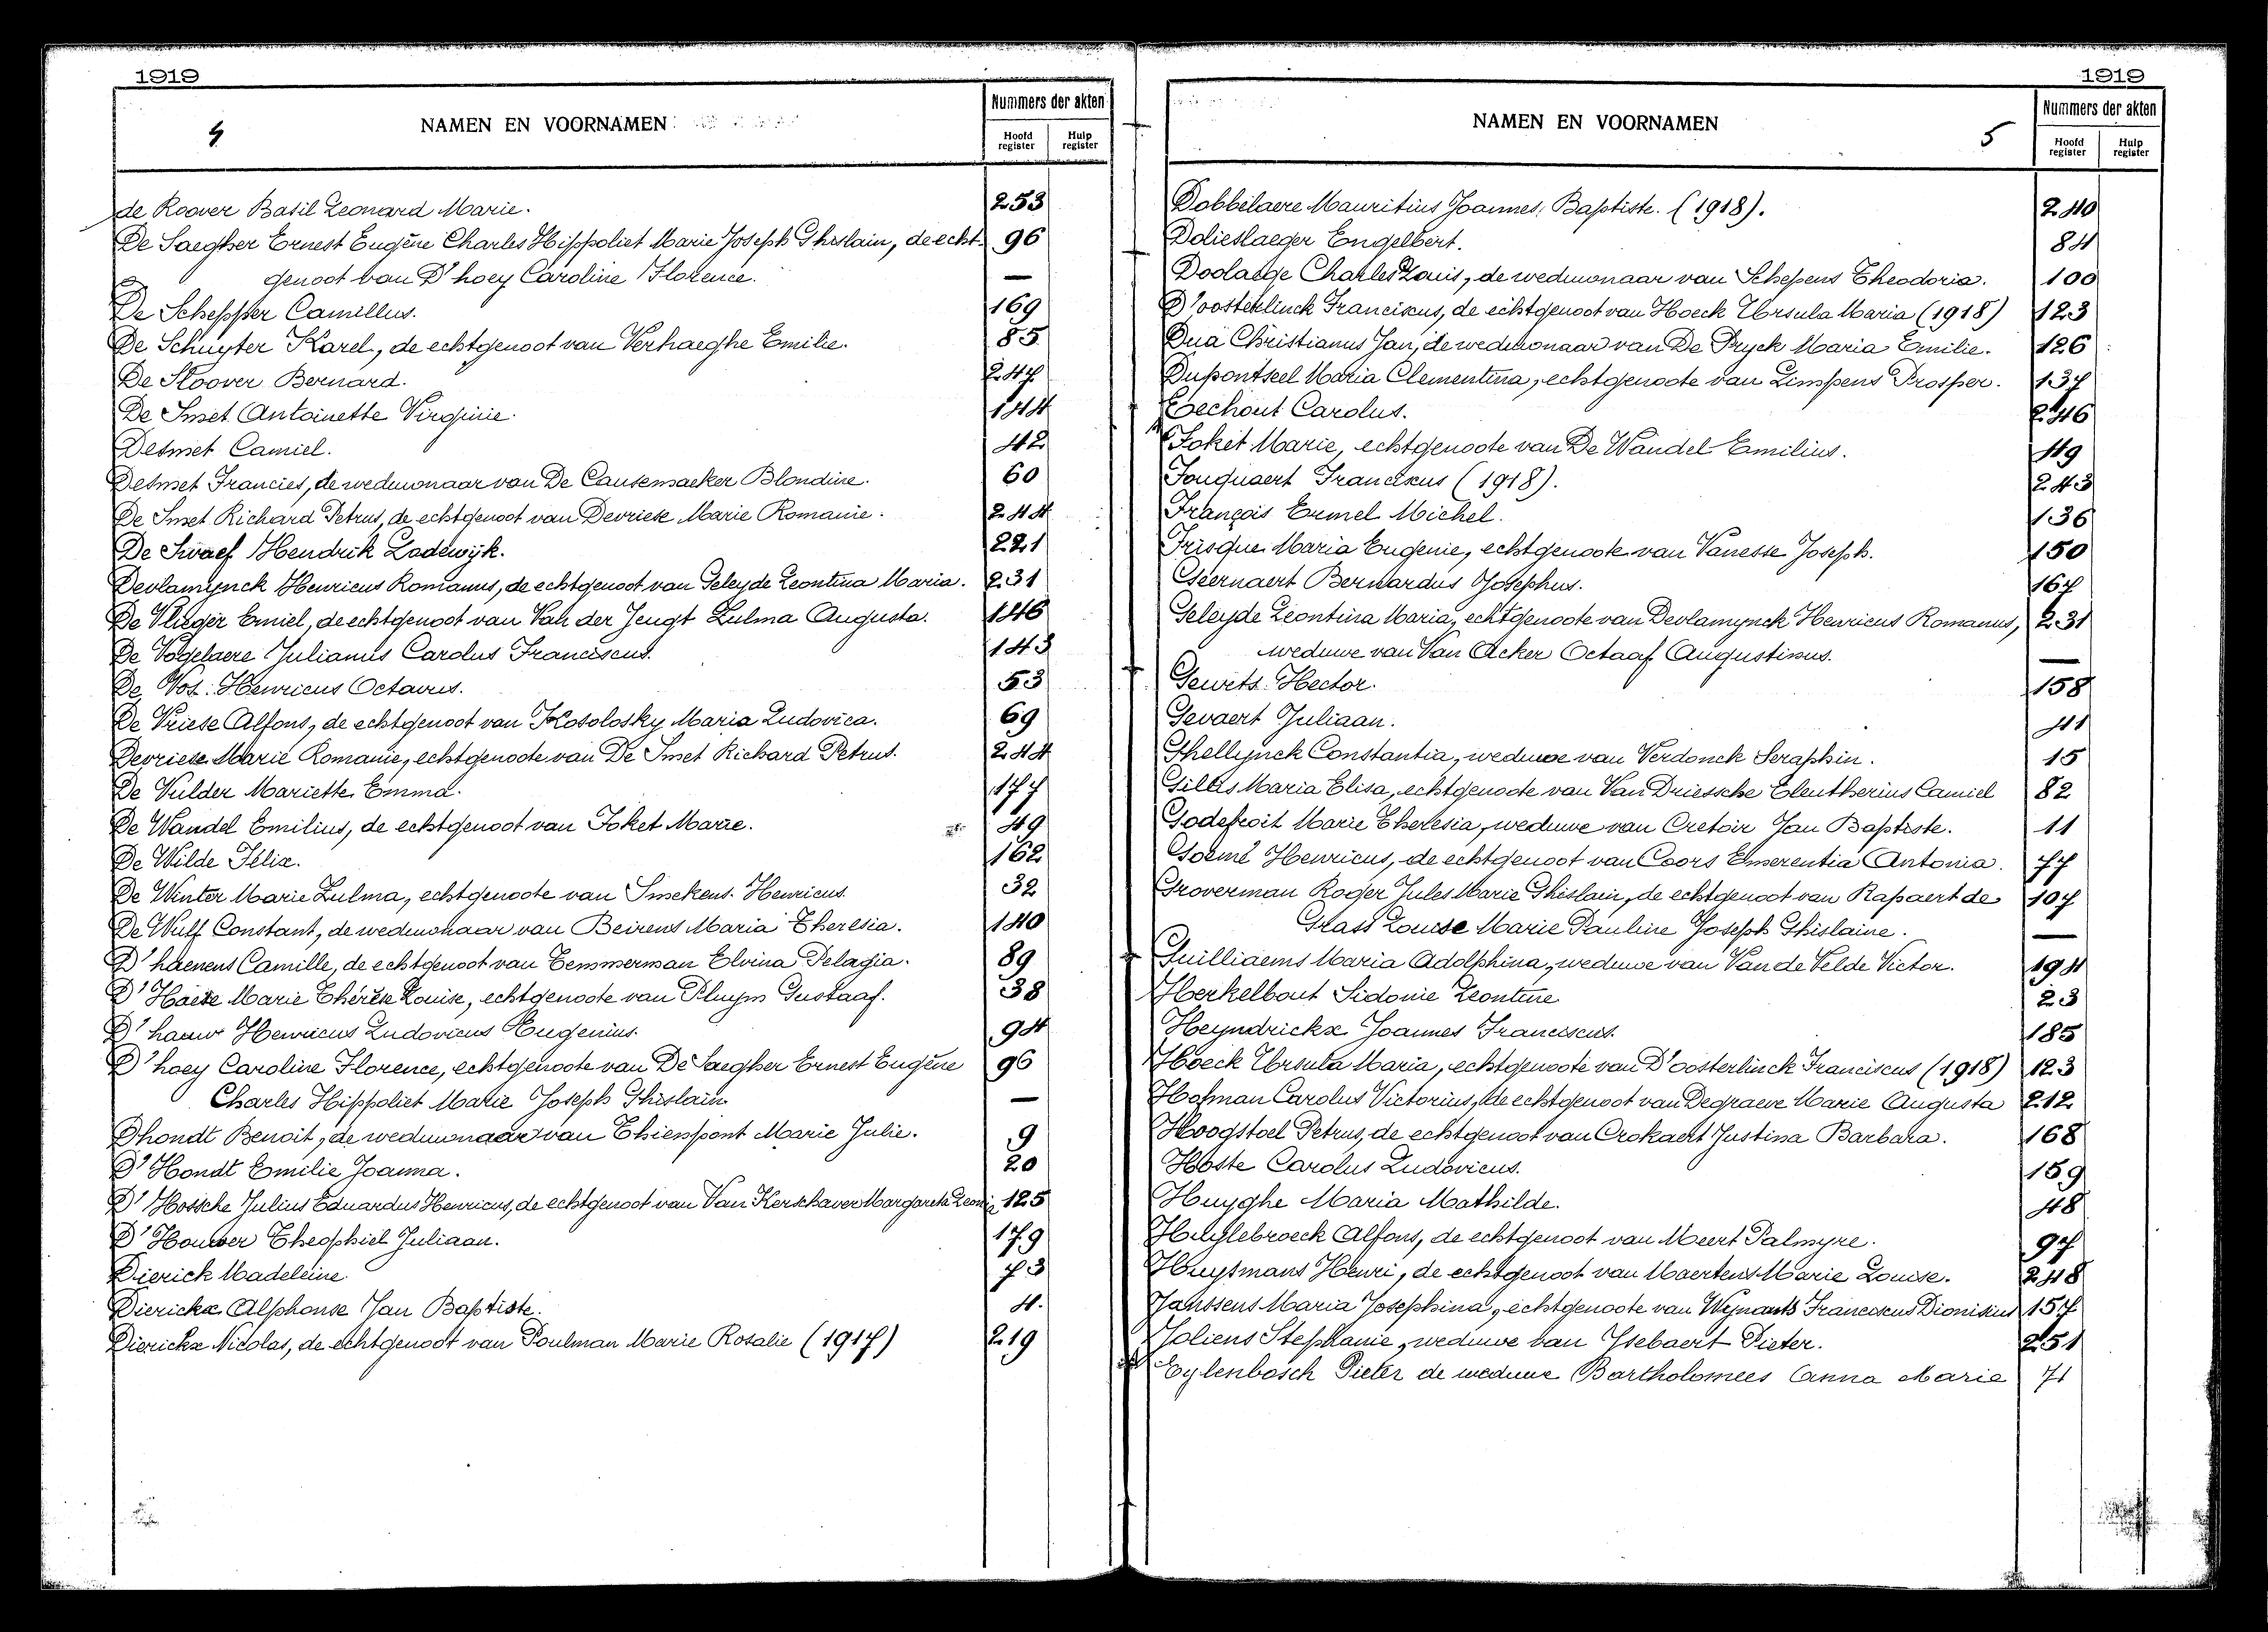 1919
4
NAMEN EN VOORNAMEN
Nummers der akten
Hoofd register
Hulp register
de Roover Basil Leonard Marie. 253
De Saegher Ernest Eugène Charles Hippoliet Marie Joseph Ghislain, de echt 96
genoot van D'hoey Caroline Florence. —
De Schepper Camillus. 169
De Schuyter Karel, de echtgenoot van Verhaeghe Emilie. 85
De Sloover Bernard. 247
De Smet Antoinette Virginie. 144
Desmet Camiel. 42
Desmet Francies, de weduwnaar van De Causemaeker Blondine. 60
De Smet Richard Petrus, de echtgenoot van Devriese Marie Romanie. 244
De Swaef Hendrik Lodewijk. 221
Devlamynck Henricus Romanus, de echtgenoot van Geleyde Leontina Maria. 231
De Vlieger Emiel, de echtgenoot van Van der Jeugt Zulma Augusta. 146
De Vogelaere Julianus Carolus Franciscus. 143
De Vos Henricus Octavus. 53
De Vriese Alfons, de echtgenoot van Kosolosky Maria Ludovica. 69
Devriese Marie Romanie, echtgenoote van De Smet Richard Petrus. 244
De Vulder Mariette Emma. 177
De Wandel Emilius, de echtgenoot van Foket Marie. 49
De Wilde Félix. 162
De Winter Marie Zulma, echtgenoote van Smekens Henricus. 32
De Wulf Constant, de weduwnaar van Beirens Maria Theresia. 140
D'haenens Camille, de echtgenoot van Temmerman Elvina Pelagia. 89
D'Haeze Marie Thérèse Louise, echtgenoote van Pluym Gustaaf. 38
D'hauw Henricus Ludovicus Eugenius. 94
D'hoey Caroline Florence, echtgenoote van De Saegher Ernest Eugène 96
Charles Hippoliet Marie Joseph Ghislain —
Dhondt Benoit, de weduwnaar van Thienpont Marie Julie. 9
D'Hondt Emilie Joanna. 20
D'Hossche Julius Eduardus Henricus, de echtgenoot van Van Kerschaver Margareta Leonie 125
D'Houwer Theophiel Juliaan. 179
Dierick Madeleine 73
Dierickx Alphonse Jan Baptiste. 4.
Dierickx Nicolas, de echtgenoot van Poulman Marie Rosalie (1917) 219
1919
NAMEN EN VOORNAMEN
5
Nummers der akten
Hoofd register
Hulp register
Dobbelaere Mauritius Joannes, Baptiste. (1918). 240
Dolieslaeger Engelbert. 84
Doolaege Charles Louis, de weduwnaar van Schepens Theodoria. 100
D'oosterlinck Franciscus, de echtgenoot van Hoeck Ursula Maria (1918) 123
Dua Christianus Jan, de weduwnaar van De Pryck Maria Emilie. 126
Dupontseel Maria Clementina, echtgenoote van Limpens Prosper. 137
Eechout Carolus. 246
Foket Marie, echtgenoote van De Wandel Emilius. 49
Fouquaert Franciscus (1918). 243
François Ermel Michel. 136
Frisque Maria Eugenie, echtgenoote van Vanesse Joseph. 150
Geernaert Bernardus Josephus. 167
Geleyde Leontina Maria, echtgenoote van Devlamynck Henricus Romanus, 231
weduwe van Van Acker Octaaf Augustinus. —
Gewets Hector. 158
Gevaert Juliaan. 41
Ghellynck Constantia, weduwe van Verdonck Seraphin. 15
Gilles Maria Elisa, echtgenoote van Van Driessche Eleutherius Camiel 82
Godefroit Marie Theresia, weduwe van Cretoir Jan Baptiste. 11
Goemé Henricus, de echtgenoot van Coors Emerentia Antonia. 77
Groverman Roger Jules Marie Ghislain, de echtgenoot van Rapaert de 107
Grass Louise Marie Pauline Joseph Ghislaine. —
Guilliaems Maria Adolphina, weduwe van Van de Velde Victor. 194
Herkelbout Sidonie Leontine 23
Heyndrickx Joannes Franciscus. 185
Hoeck Ursula Maria, echtgenoote van D'oosterlinck Franciscus (1918) 123
Hofman Carolus Victorius, de echtgenoot van Degraeve Marie Augusta 212
Hoogstoel Petrus, de echtgenoot van Crokaert Justina Barbara. 168
Hoste Carolus Ludovicus. 159
Huyghe Maria Mathilde. 48
Huylebroeck Alfons, de echtgenoot van Meert Palmyre. 97
Huysmans Henri, de echtgenoot van Maertens Marie Louise. 248
Janssens Maria Josephina, echtgenoote van Wynants Franciscus Dionisius 157
Joliens Stephanie, weduwe van Ysebaert Pieter. 251
Eylenbosch Pieter de weduwe Bartholomees Anna Marie 71